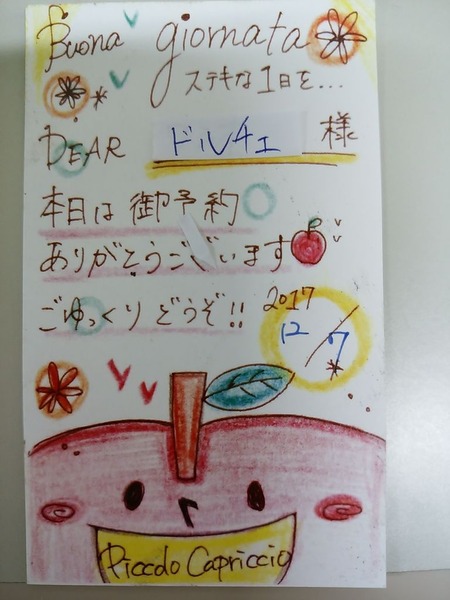 Buona giornata
ステキな1日を...
DEAR ドルチェ 様
本日は御予約
ありがとうございます
ごゆっくりどうぞ!!
2017
12/7
Piccolo Capriccio